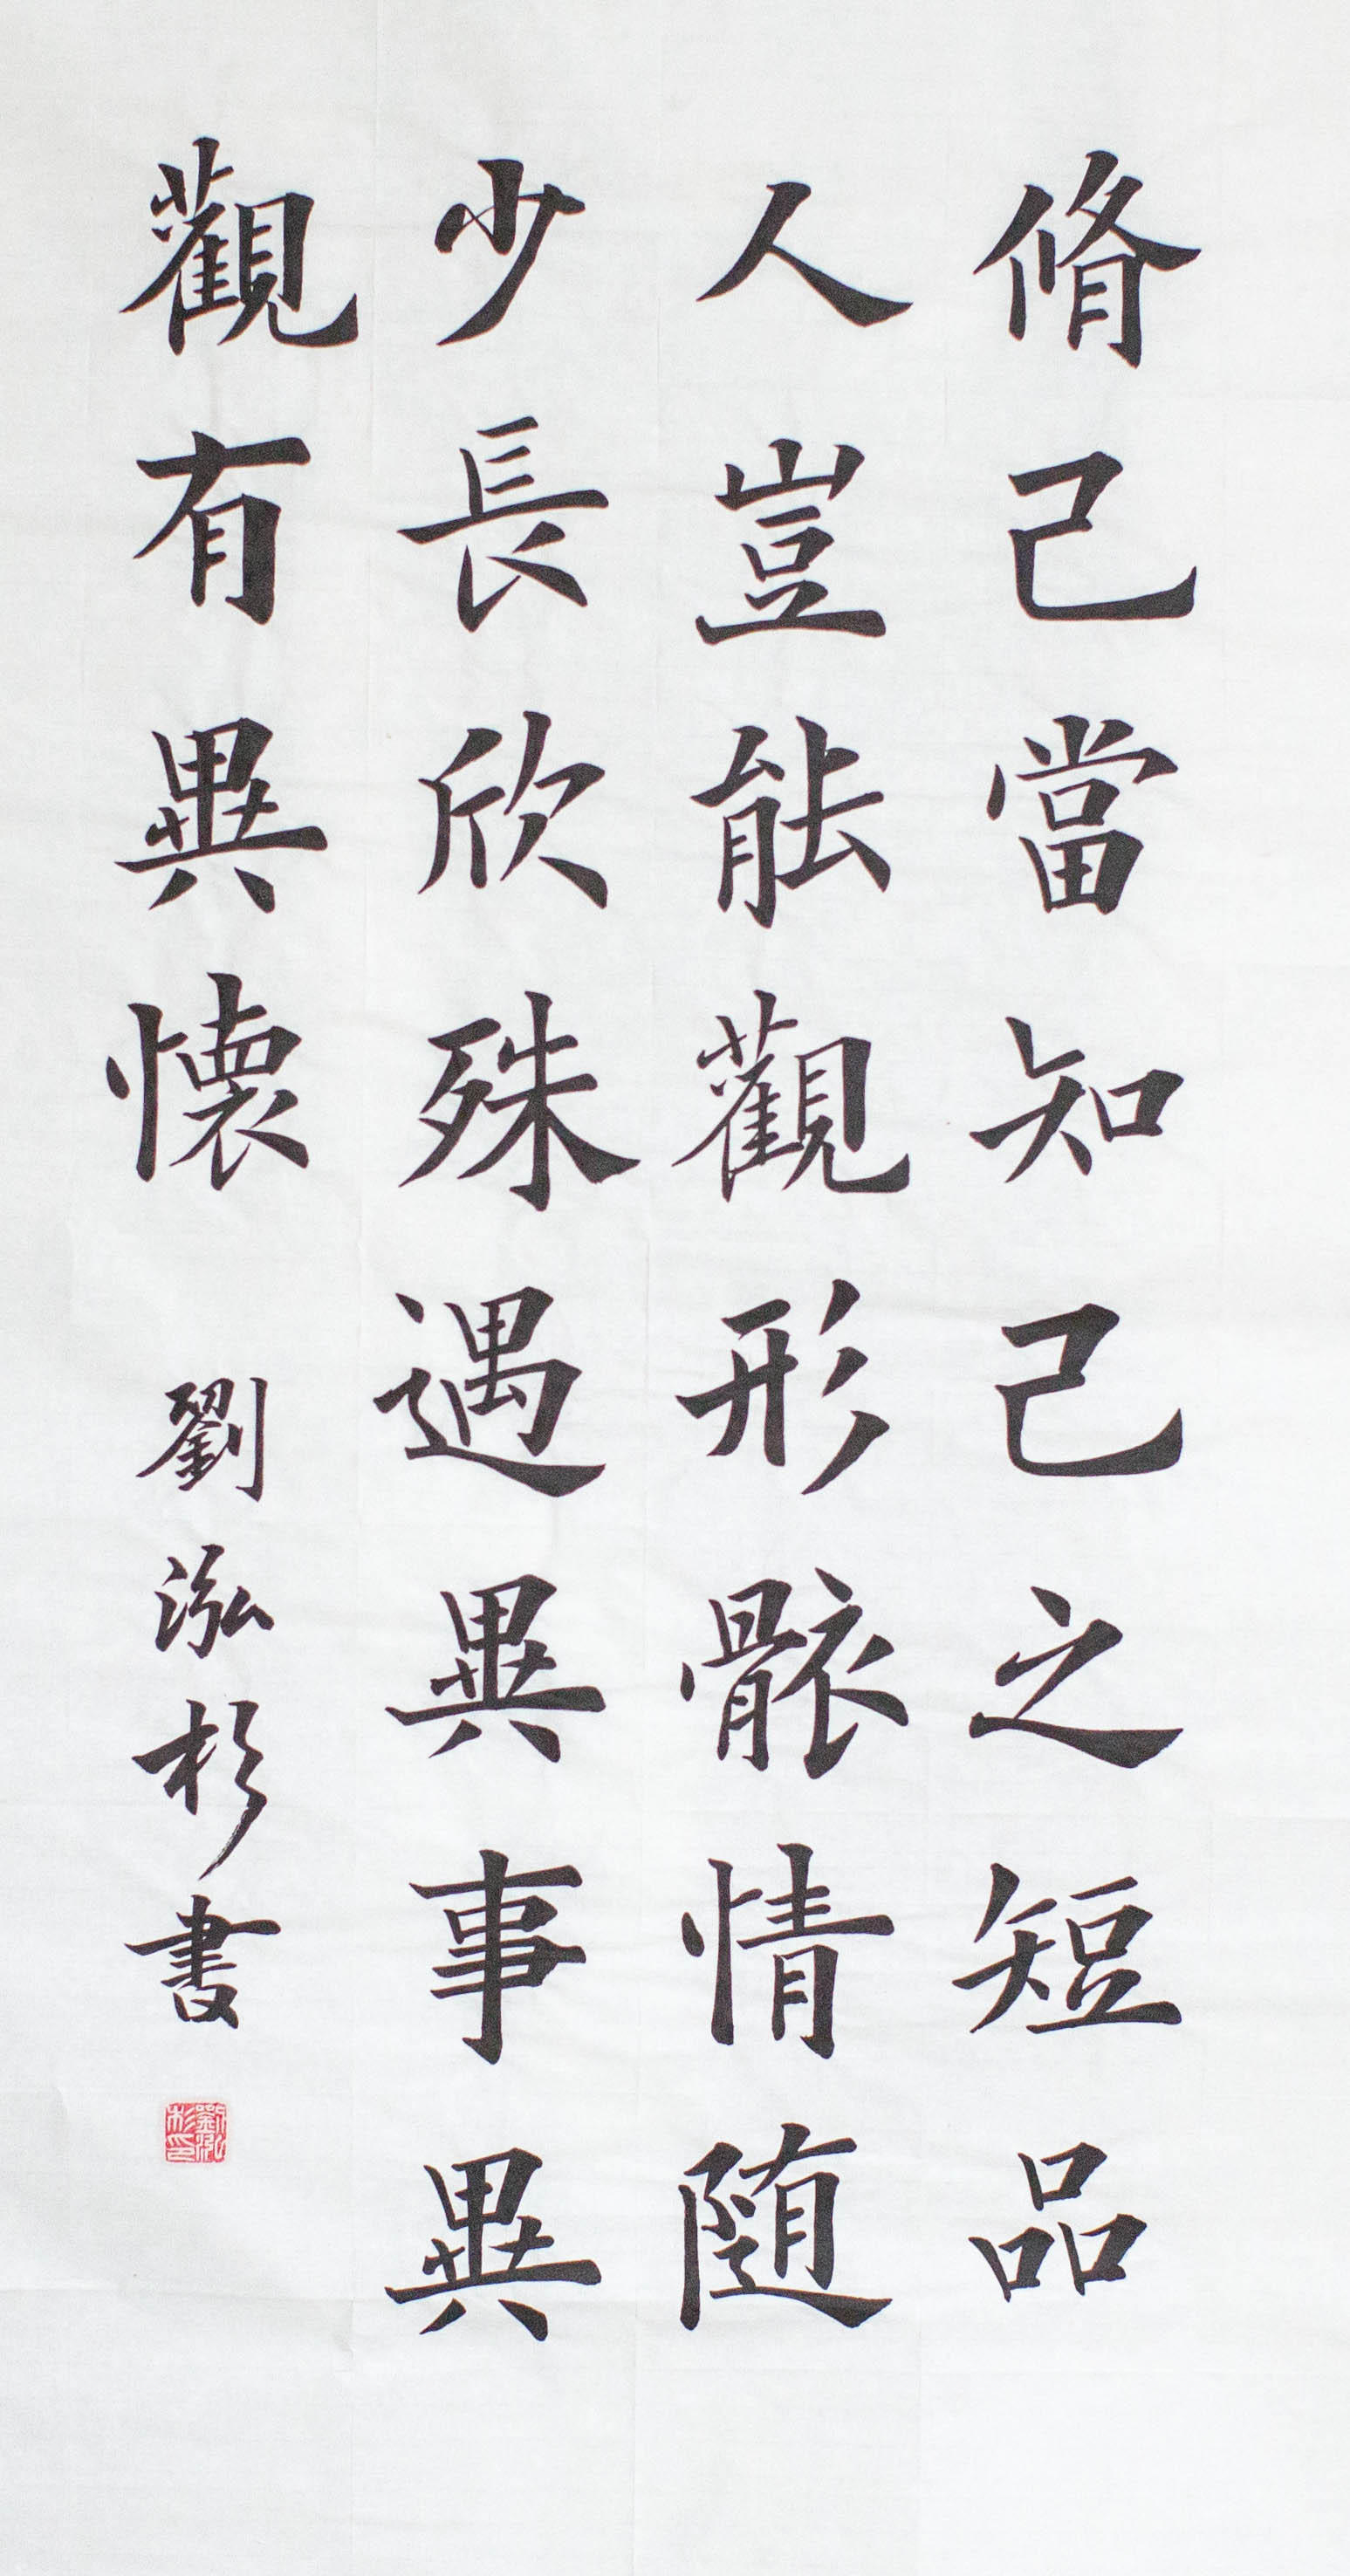 脩己當知己之短品
人豈能觀形骸情隨
少長欣殊遇異事異
觀有異懷
劉泓杉書
劉泓杉印